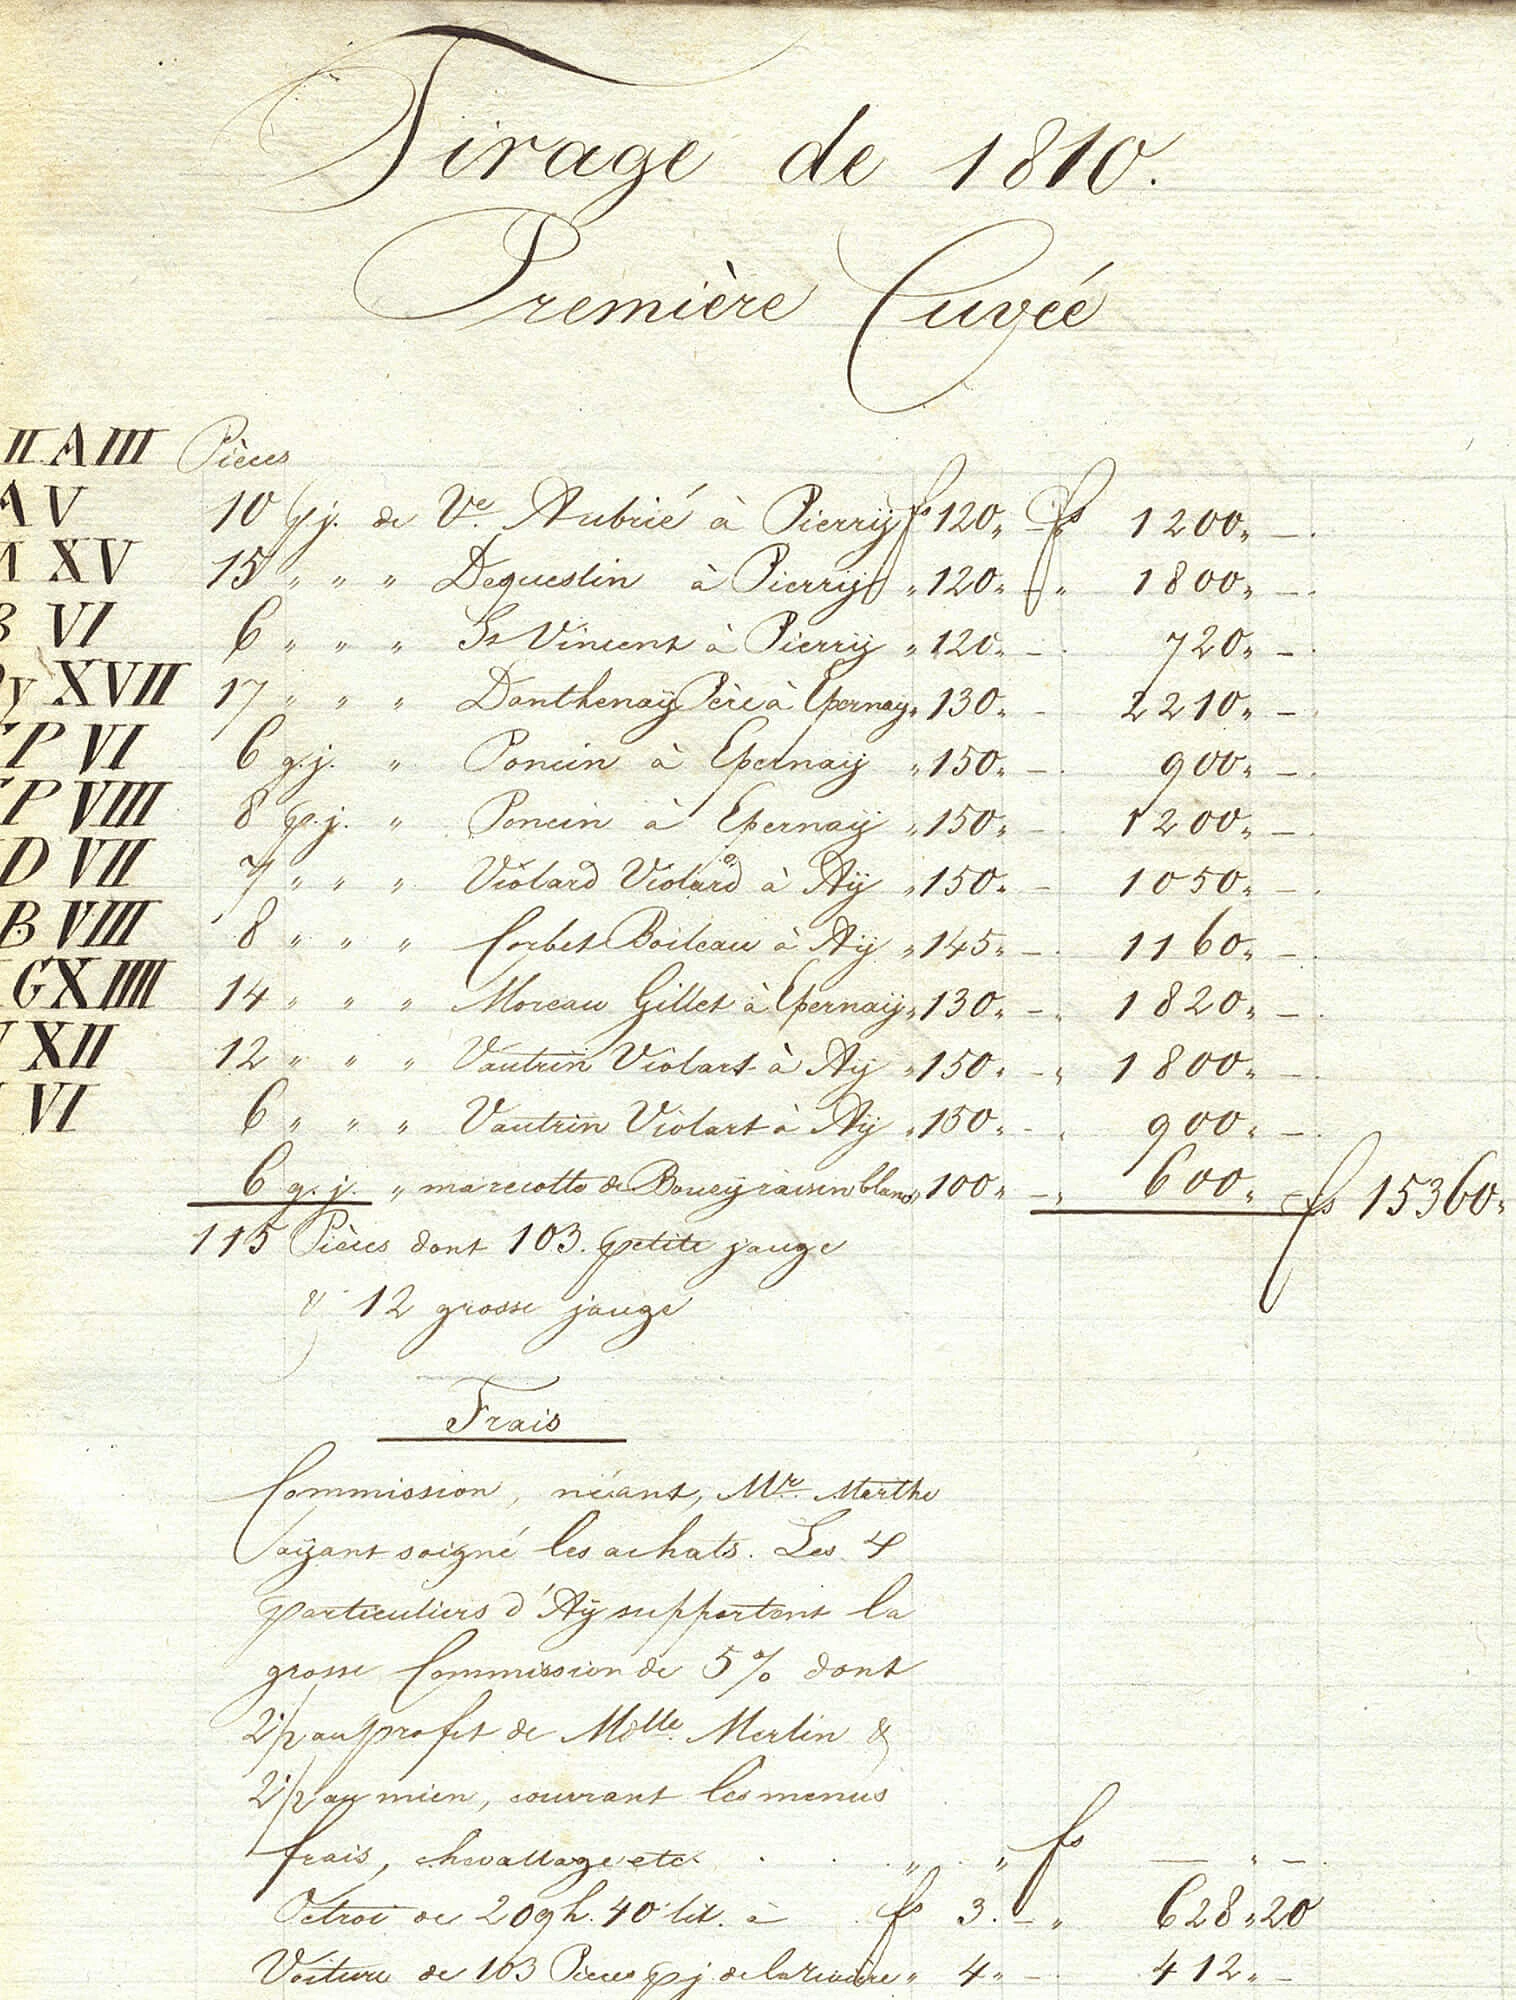 Tirage de 1810.
Première Cuvée
II A III Pièces
AV 10 p.j. de Ve. Aubrié à Pierrÿ fs 120 „ — fs 1200 „ —
XV 15 „ „ „ Dequestin à Pierrÿ „ 120 „ — „ 1800 „ —
B VI 6 „ „ „ St Vincent à Pierrÿ „ 120 „ — 720 „ —
y XVII 17 „ „ „ Donthenaÿ Père à Epernaÿ „ 130 „ — 2210 „ —
P VI 6 g.j. „ Poncin à Epernaÿ „ 150 „ — 900 „ —
P VIII 8 p.j. „ Poncin à Epernaÿ „ 150 „ — 1200 „ —
D VII 7 „ „ „ Violard Violard à Aÿ „ 150 „ — 1050 „ —
B VIII 8 „ „ „ Corbet Boileau à Aÿ „ 145 „ — 1160 „ —
GXIIII 14 „ „ „ Moreau Gillet à Epernaÿ „ 130 „ — „ 1820 „ —
XII 12 „ „ „ Vautrin Violart à Aÿ „ 150 „ — „ 1800 „ —
VI 6 „ „ „ Vautrin Violart à Aÿ „ 150 „ — „ 900 „ —
6 g.j. „ marcotte de Bouzÿ raisin blanc „ 100 „ — „ 600 „ fs 15360 „
115 Pièces dont 103. petite jauge
& 12 grosse jauge
Frais
Commission, néant, Mr. Merthe
aÿant soigné les achats. Les 4
particuliers d'Aÿ supportent la
grosse Commission de 5 % dont
2 1/2 au profit de Mdlle. Merlin &
2 1/2 au mien, couvrant les menus
frais, chevallage etc. . . . „ „ fs — „ —
Octroi de 209 h. 40 lit. à . fs 3. — „ 628 „ 20
Voiture de 103 Pièces p j de la rivière „ 4 „ — 412 „ —